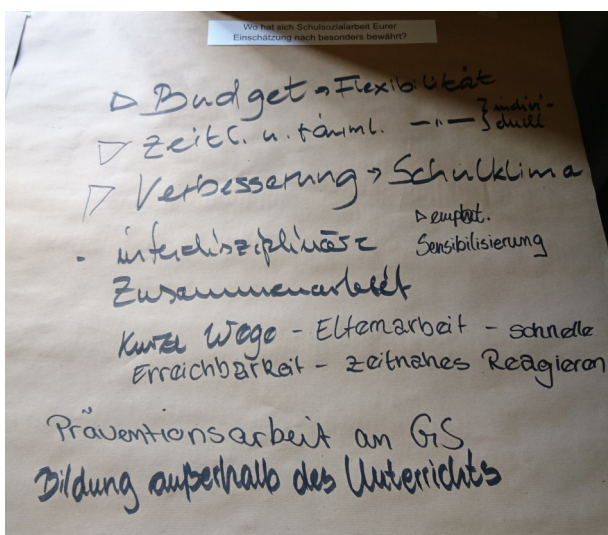 Wo hat sich Schulsozialarbeit Eurer
Einschätzung nach besonders bewährt?
▷ Budget → Flexibilität
▷ zeitl. u. räuml. — " — } indivi-
duell
▷ Verbesserung → Schulklima
▷ empat.
Sensibilisierung
· interdisziplinäre
Zusammenarbeit
Kurze Wege - Elternarbeit - schnelle
Erreichbarkeit - zeitnahes Reagieren
Präventionsarbeit an GS
Bildung außerhalb des Unterrichts